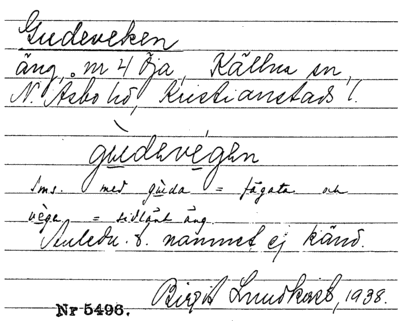 Gudeveken
äng, m 4 Öja, Källna sn,
N. Åsbo hd, Kristianstads l.
gùdevégen
Sms. med gùda = fägata och
vèga = sidlänt äng.
Anledn. t. namnet ej känd.
Birgit 1938.
Nr 5496.